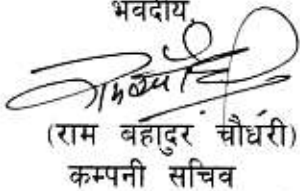 भवदीय,
(राम बहादुर चौधरी)
कम्पनी सचिव